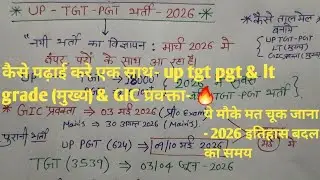 * UP - TGT - PGT भर्ती - 2026 *
"नयी भर्ती का विज्ञापन : मार्च 2026 में
* कैसे ताल मेल
बनाये
UP TGT-PGT
LT (मुख्य)
कैसे पढ़ाई करें एक साथ- up tgt pgt & lt
grade (मुख्य) & GIC प्रवक्ता- 🔥
ये मौके मत चूक जाना
- 2026 इतिहास बदलने
का समय
* GIC प्रवक्ता → 03 मई 2026 (Pre) Exam
Mains → 30 अगस्त 2026 (Mains)
पुरानी भर्ती
UP PGT (624) → 09/10 मई
TGT (3539) → 03/04 जून - 2026